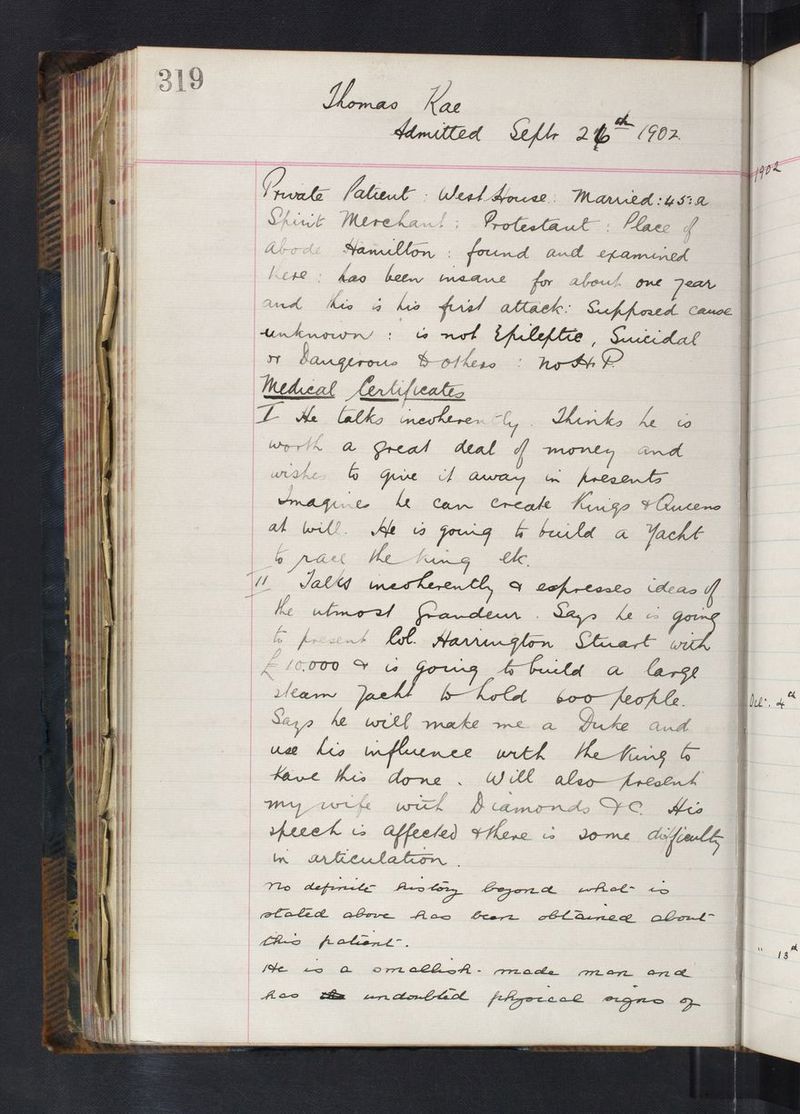 319
Thomas Kae
Admitted Septr 26th 1902
Private Patient : West House : Married : 45 : a
Spirit Merchant : Protestant : Place of
abode Hamilton : found and examined
here : has been insane for about one year
and this is his first attack : Supposed cause
unknown : is not Epileptic, Suicidal
or Dangerous to others : no H.P.
Medical Certificates
I He talks incoherently. Thinks he is
worth a great deal of money and
wishes to give it away in presents
Imagines he can create Kings & Queens
at will. He is going to build a Yacht
to race the King etc.
II Talks incoherently & expresses ideas of
the utmost Grandeur. Says he is going
to present Col. Harrington Stuart with
£10.000 & is going to build a large
steam Yacht to hold 600 people.
Says he will make me a Duke and
use his influence with the King to
have this done. Will also present
my wife with Diamonds &C. His
speech is affected & there is some difficulty
in articulation.
No definite history beyond what is
stated above has been obtained about
this patient.
He is a smallish-made man and
has undoubted physical signs of
1902
Oct. 4th
" 13th